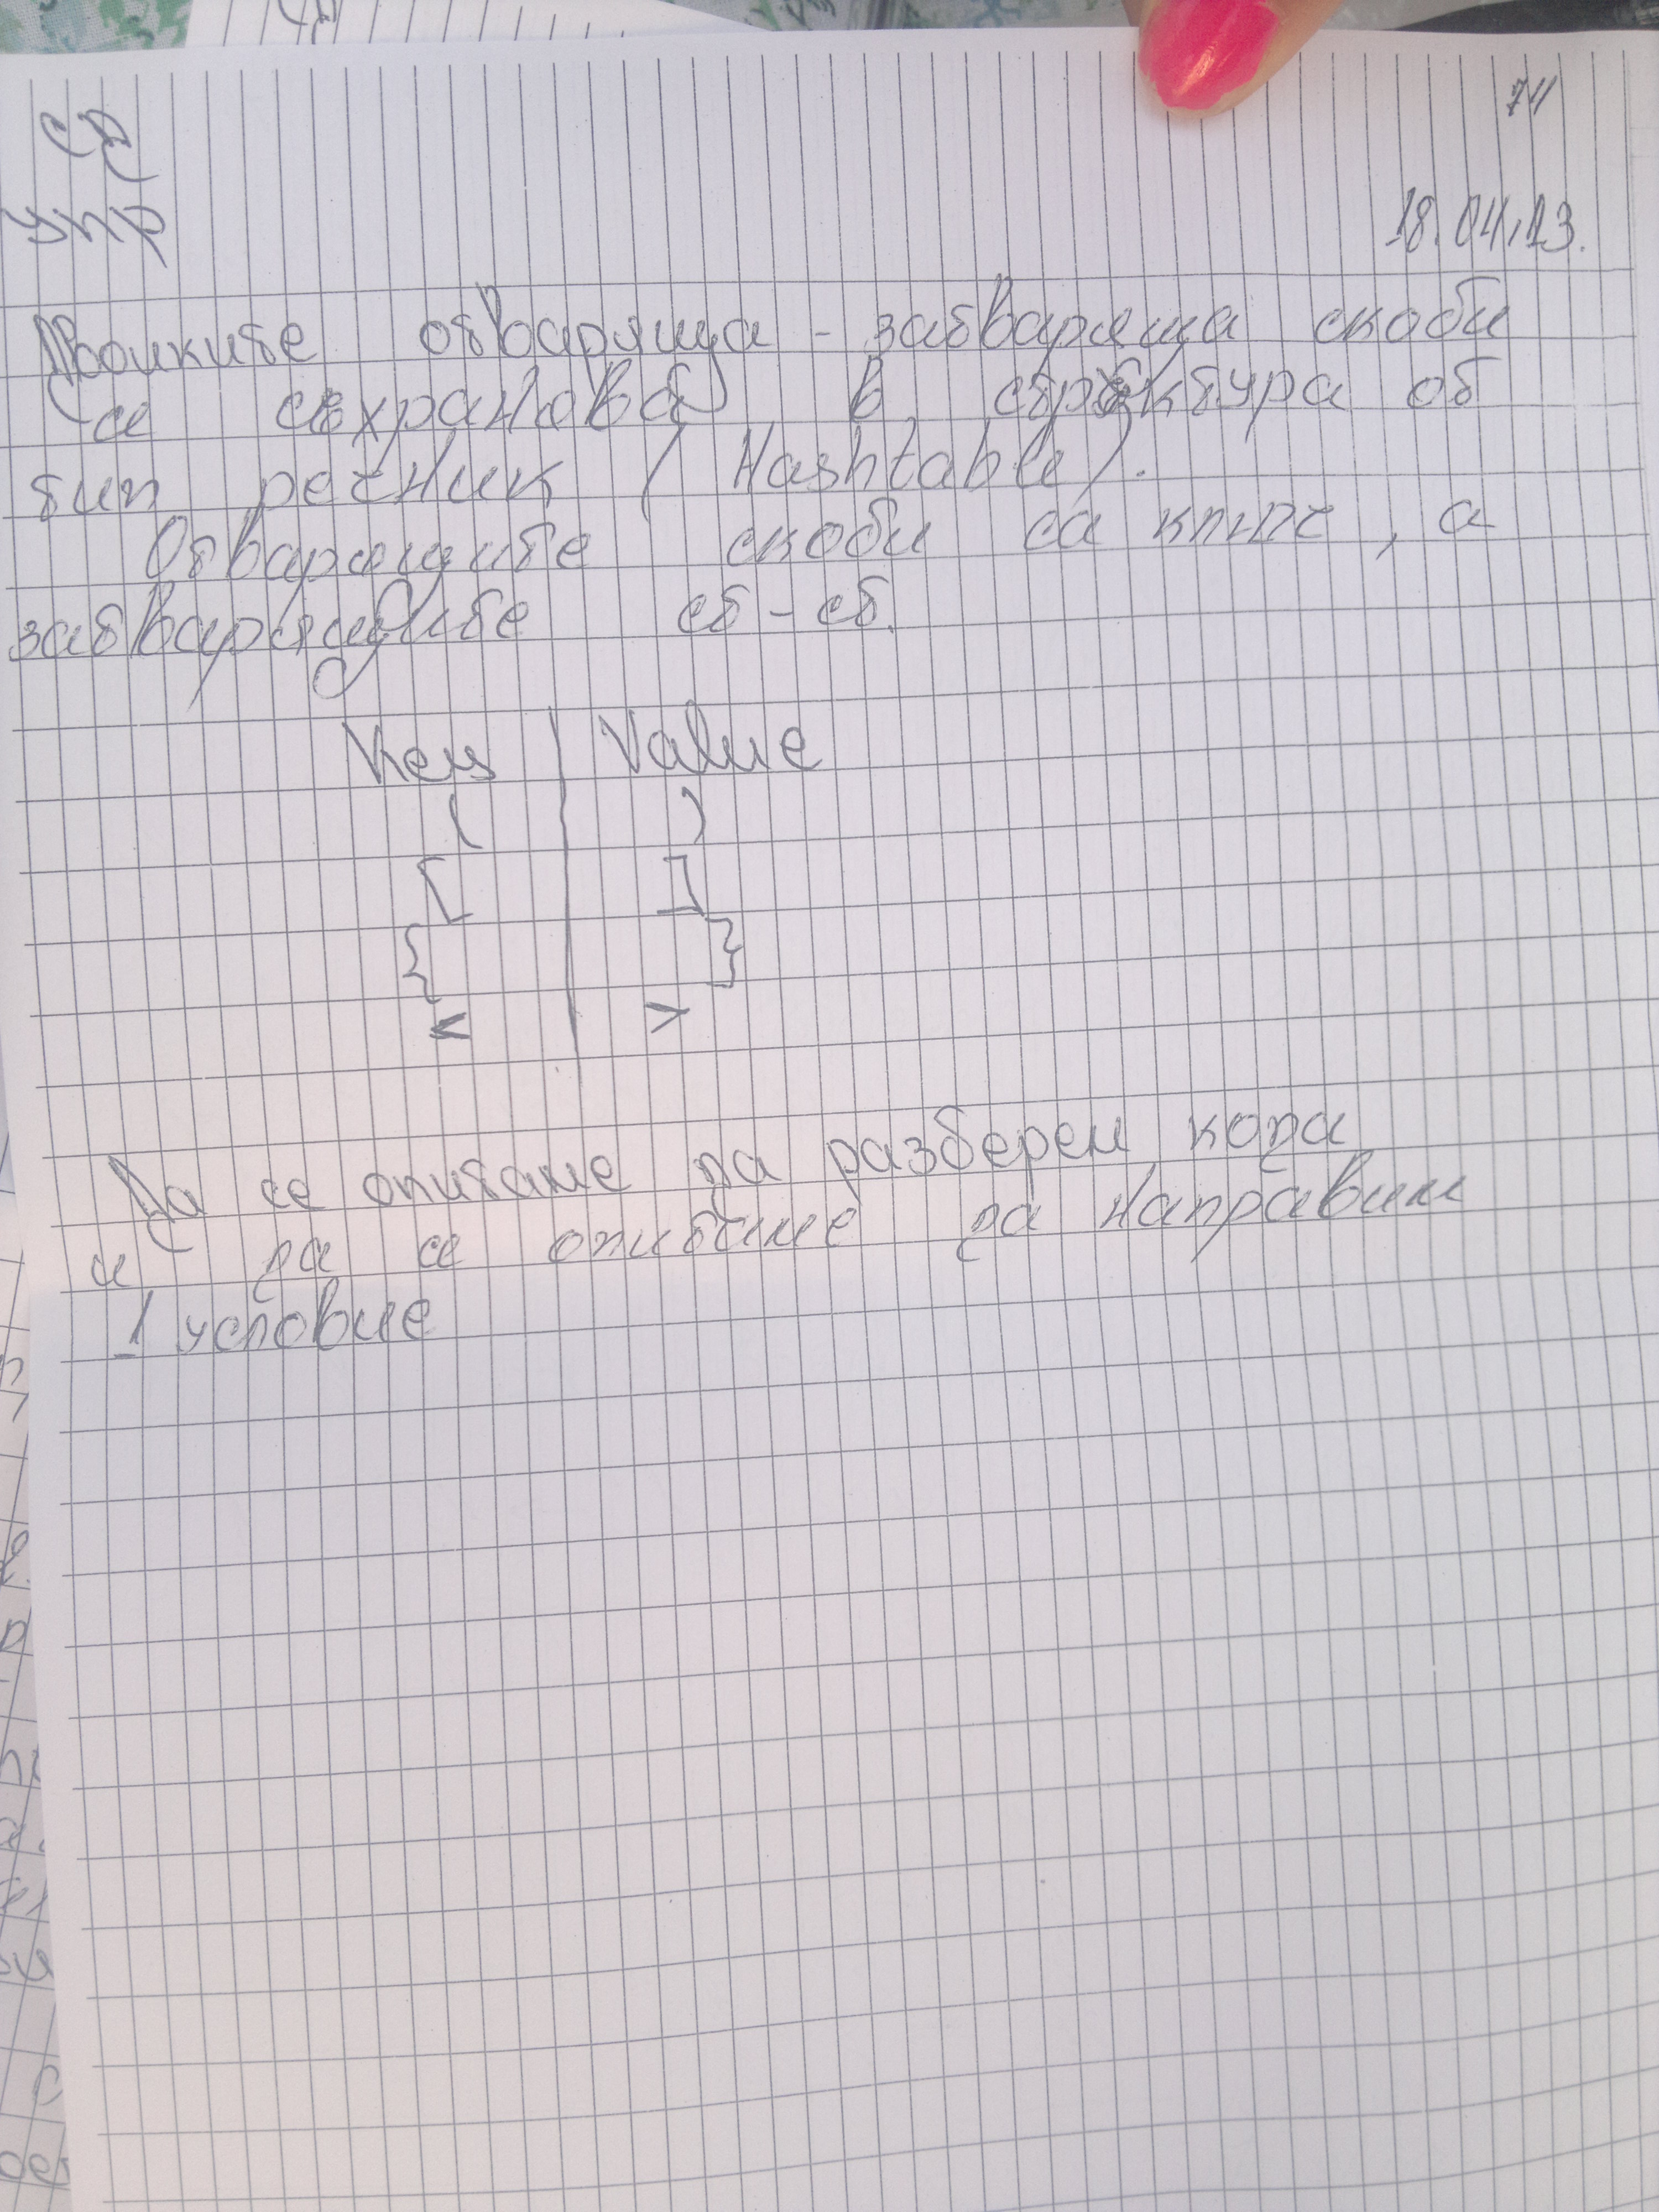 74
СД
Упр
18.04.23.
Двойките отваряща - затваряща скоби
се съхраняват в структура от
тип речник (Hashtable).
Отварящите скоби са ключ, а
затварящите ст-ст.
Key | Value
( | )
[ | ]
{ | }
< | >
Да се опитаме да разберем кода
и да се опитаме да направим
1 условие